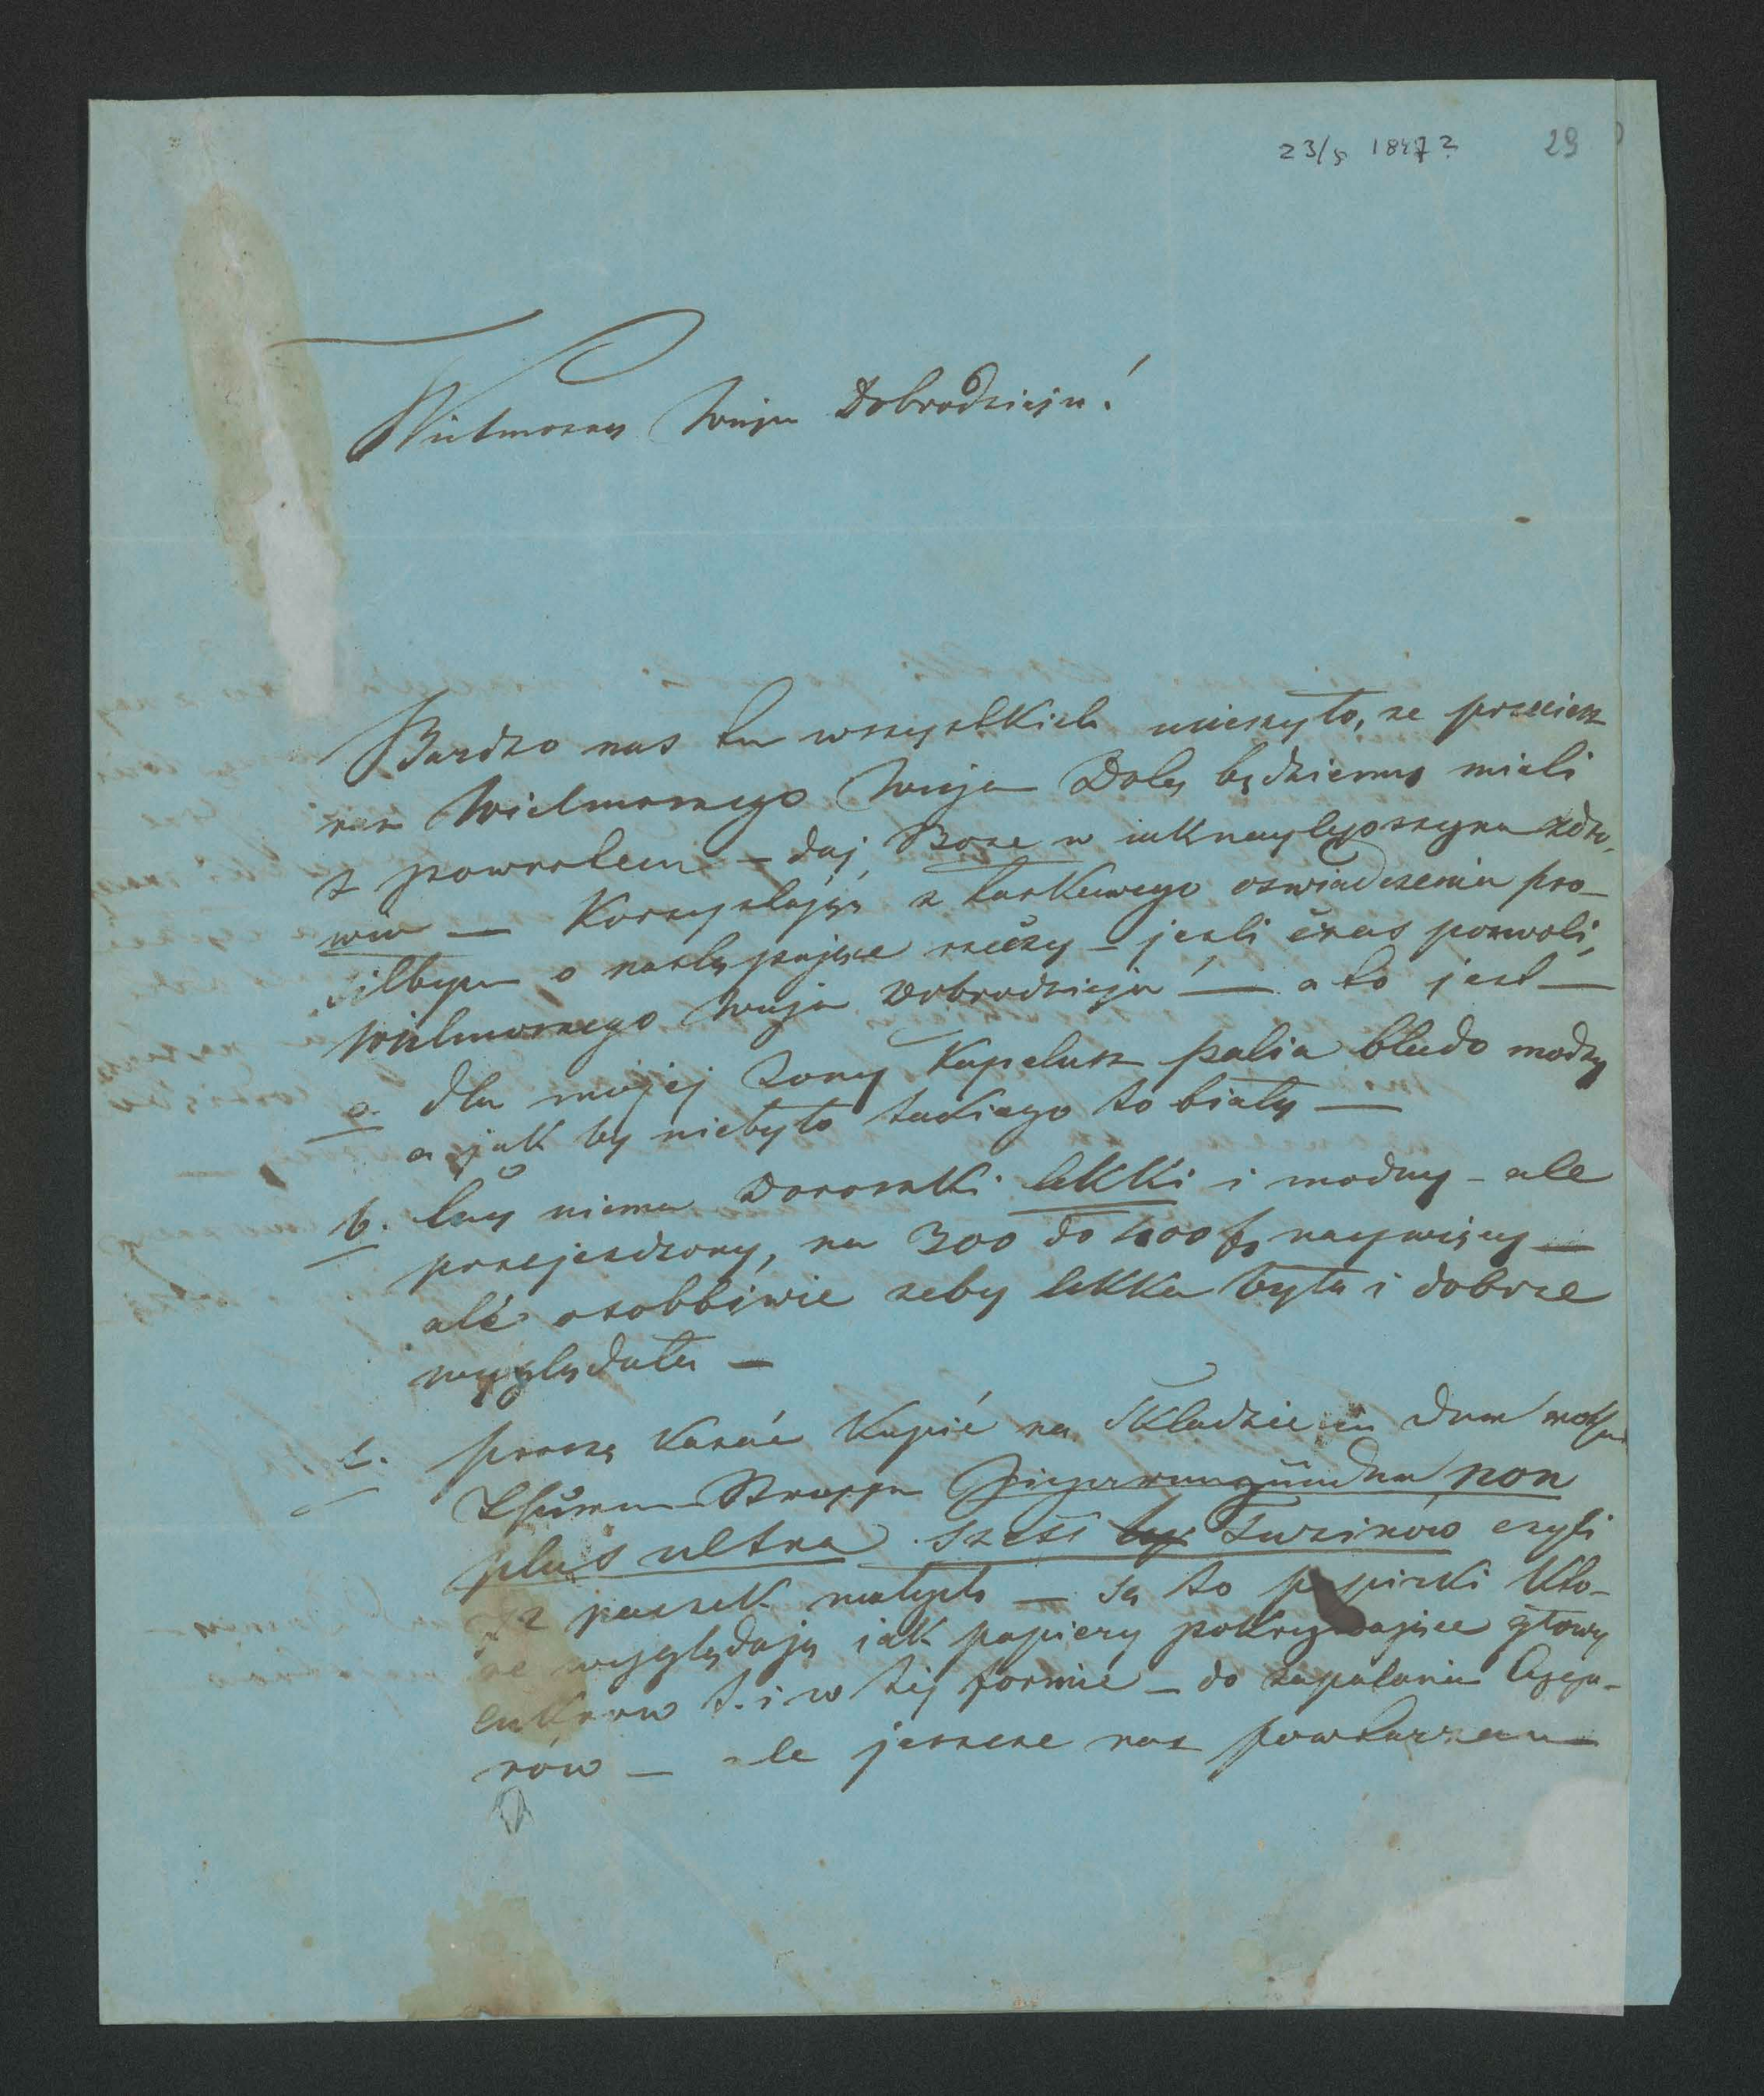 23/5 1847? 29
Wielmozny Wuju Dobrodzieju!
Bardzo nas tu wszystkich ucieszyło, ze przeciesz
Wielmoznego Wuja Dob. będziemy mieli
z powrotem – daj Boze w iaknaylepszym zdro-
wiu — Korzystając z łaskawego oswiadczenia pro-
silbym o następujące rzeczy – jesli czas pozwoli,
Wielmoznego Wuja Dobrodzieja — a to jest —
a. dla mojej zony Kapelusz palia blado modry
a jak by niebyło takiego to biały —
b. Czy niema Doroszki lekki i modny – ale
przejezdzony, na 300 do 400 f. naywięcy —
ale osobbiwie zeby lekka była i dobrze
wyglądała —
c. proszę kazać kupić na Składzie in dem
Thurm Strasse Zigarrenzünder non
plus ultra szesc Tuzinow czyli
paczek małych — są to papirki kto-
re wyglądają iak papiery pokrywające głowy
cukrow t. i w tej formie – do zapalania Cyga-
rów — ale jeszcze raz powtarzam